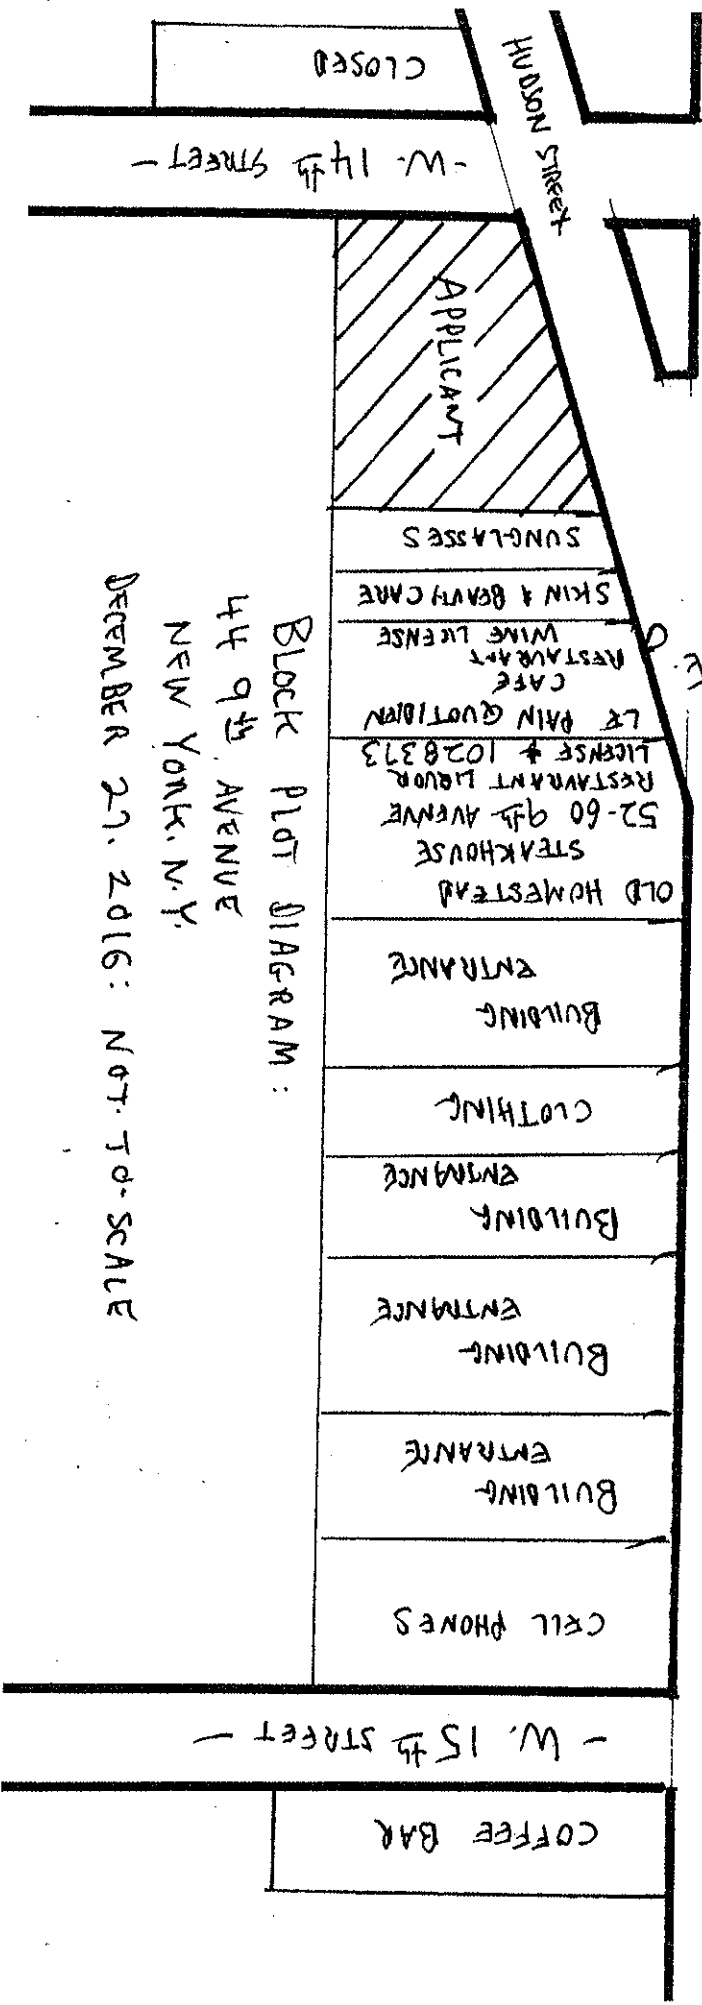 CLOSED
HUDSON STREET
- W. 14th STREET -
APPLICANT
SUNGLASSES
SKIN & BEAUTY CARE
LE PAIN QUOTIDIEN
CAFE
RESTAURANT
WINE LICENSE
OLD HOMESTEAD
STEAKHOUSE
52-60 9th AVENUE
RESTAURANT LIQUOR
LICENSE # 1028373
BUILDING
ENTRANCE
CLOTHING
BUILDING
ENTRANCE
BUILDING
ENTRANCE
BUILDING
ENTRANCE
CELL PHONES
- W. 15th STREET -
COFFEE BAR
BLOCK PLOT DIAGRAM:
44 9th AVENUE
NEW YORK. N.Y.
DECEMBER 27. 2016: NOT-TO-SCALE